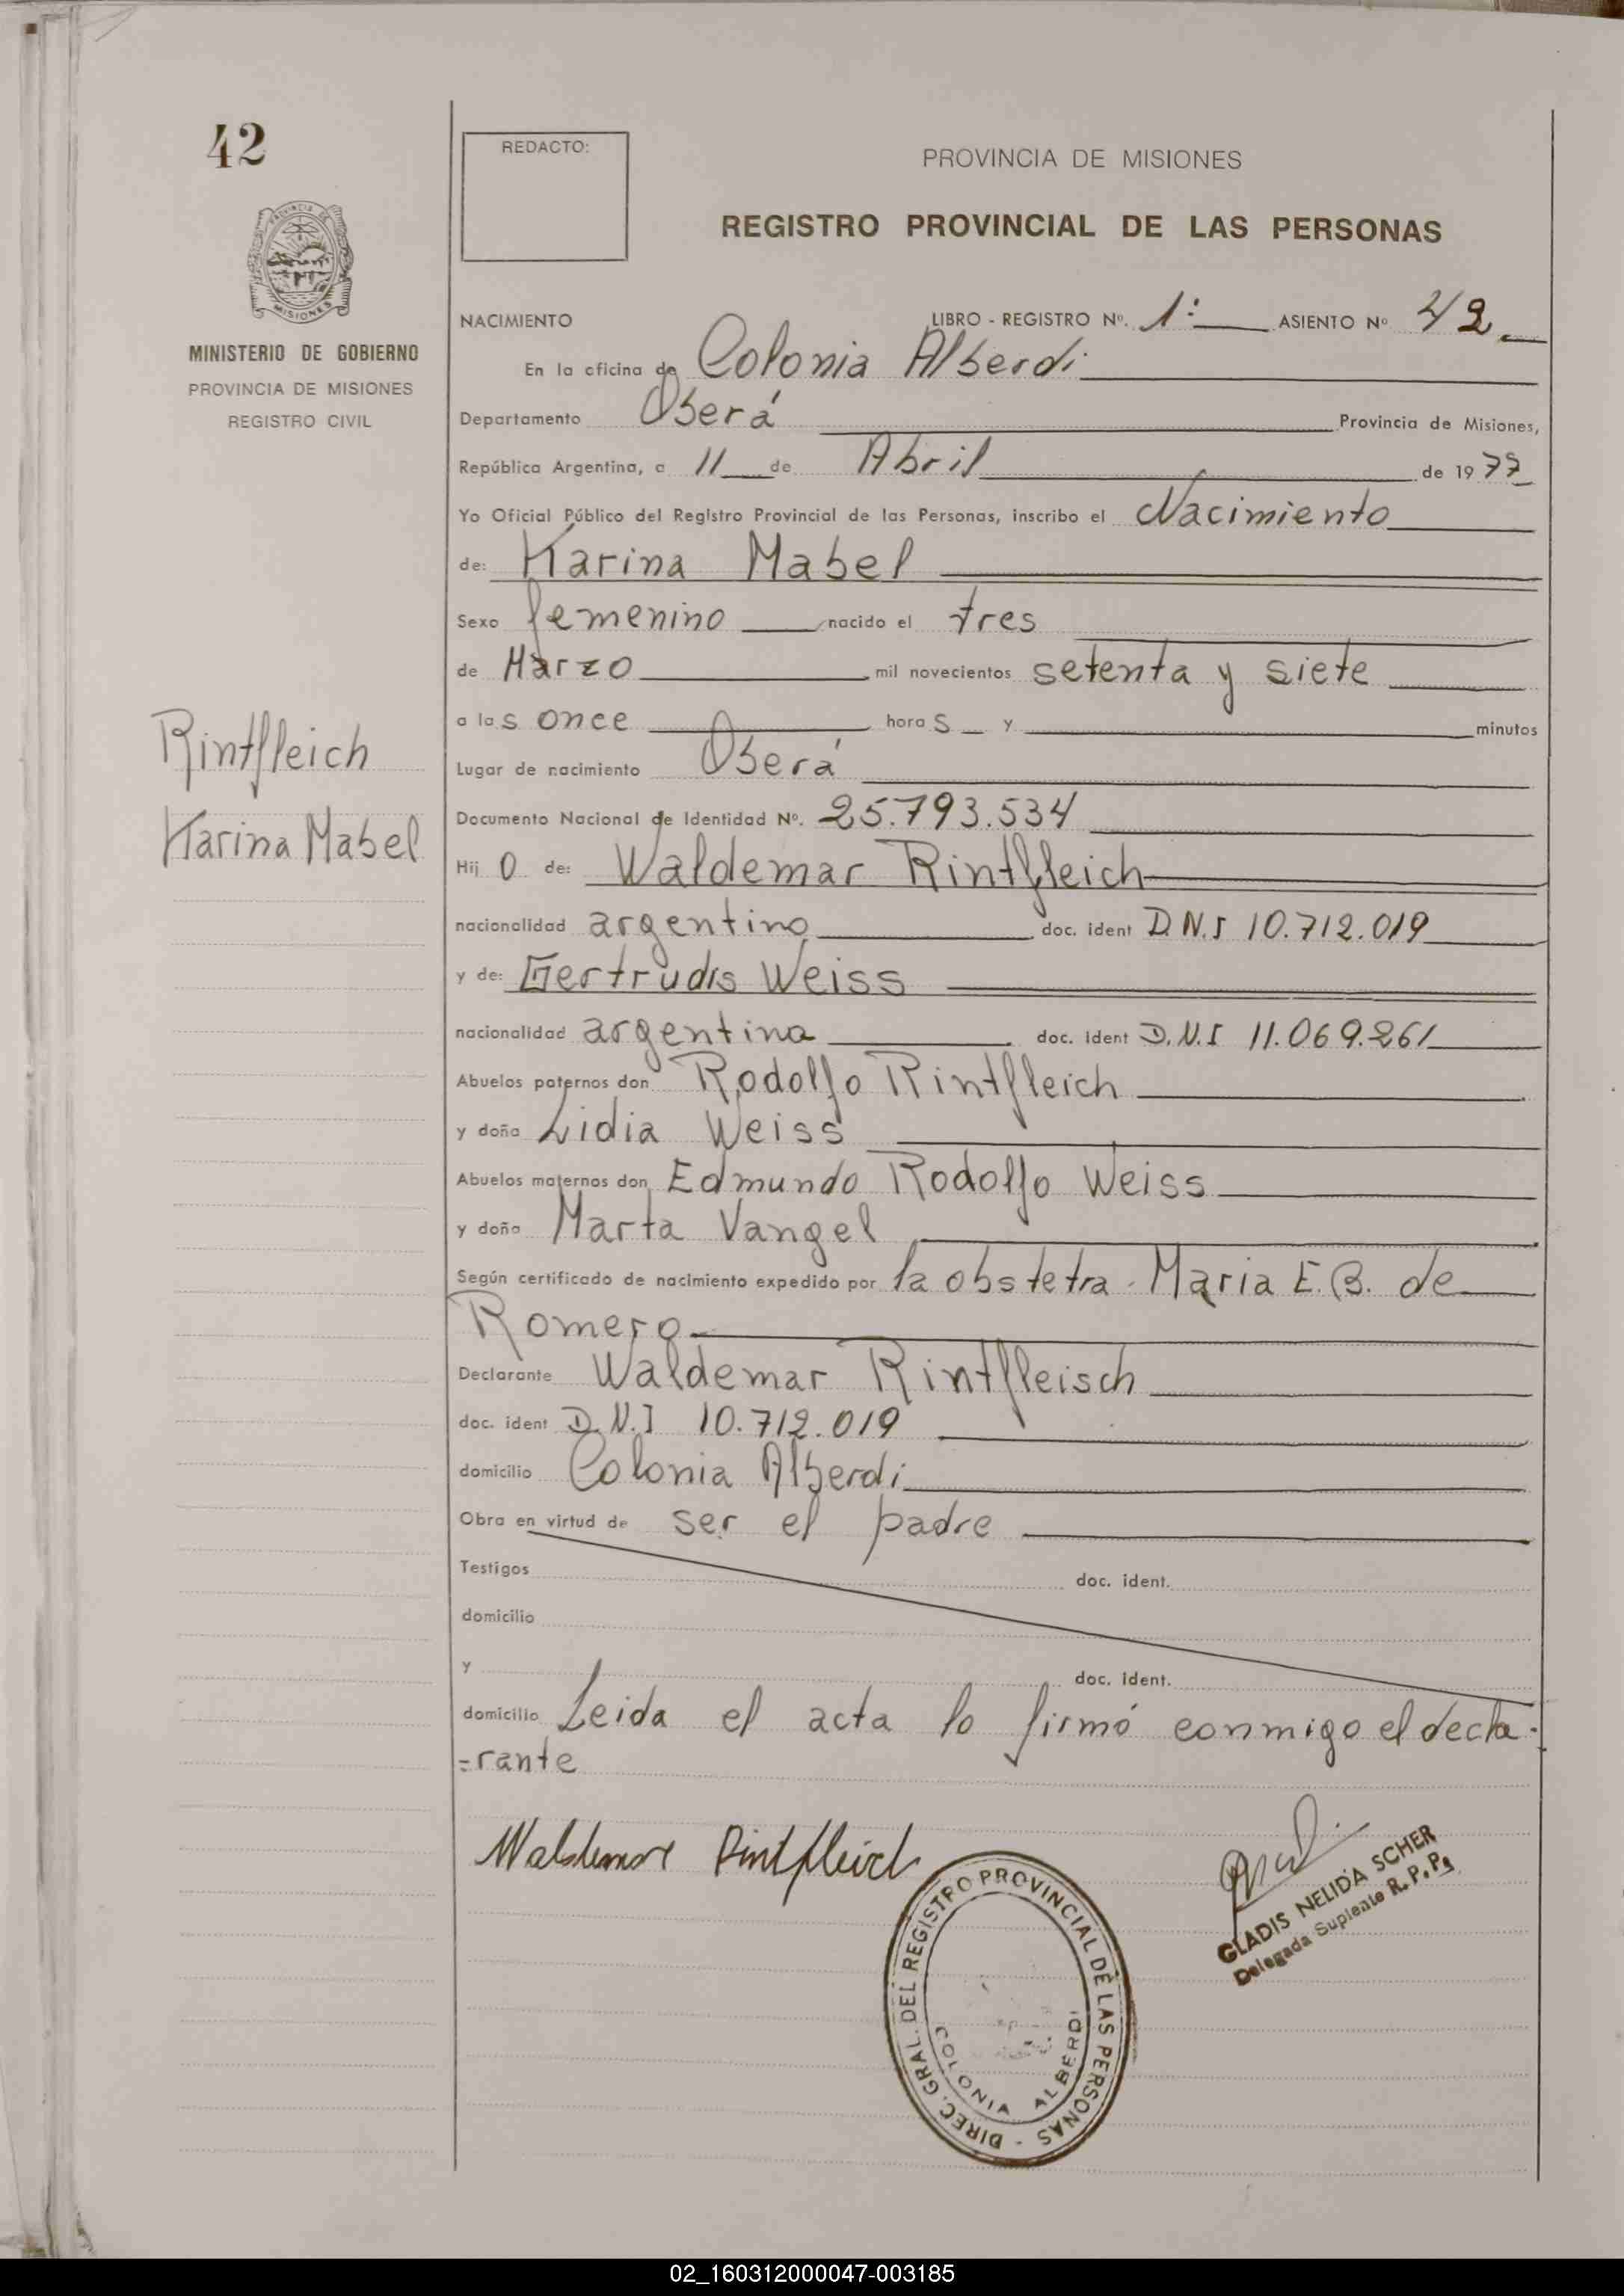 42
REDACTO:
PROVINCIA DE MISIONES
REGISTRO PROVINCIAL DE LAS PERSONAS
PROVINCIA DE
MISIONES
MINISTERIO DE GOBIERNO
PROVINCIA DE MISIONES
REGISTRO CIVIL
NACIMIENTO LIBRO - REGISTRO Nº. 1: ASIENTO Nº 42
En la oficina de Colonia Alberdi
Departamento Oberá Provincia de Misiones,
República Argentina, a 11 de Abril de 1977
Yo Oficial Público del Registro Provincial de las Personas, inscribo el Nacimiento
de: Karina Mabel
Sexo femenino nacido el tres
de Marzo mil novecientos setenta y siete
a las once horas y minutos
Lugar de nacimiento Oberá
Rintfleich
Karina Mabel
Documento Nacional de Identidad Nº. 25.793.534
Hij o de: Waldemar Rintfleich
nacionalidad argentino doc. ident D.N.I 10.712.019
y de: Gertrudis Weiss
nacionalidad argentina doc. ident D.N.I 11.069.261
Abuelos paternos don Rodolfo Rintfleich
y doña Lidia Weiss
Abuelos maternos don Edmundo Rodolfo Weiss
y doña Marta Vangel
Según certificado de nacimiento expedido por la obstetra Maria E.B. de
Romero
Declarante Waldemar Rintfleisch
doc. ident D.N.I 10.712.019
domicilio Colonia Alberdi
Obra en virtud de ser el padre
Testigos doc. ident.
domicilio
y doc. ident.
domicilio Leida el acta lo firmó conmigo el decla-
=rante
Waldemar Rintfleich
GLADIS NELIDA SCHER
Delegada Suplente R.P.P.
DIREC. GRAL. DEL REGISTRO PROVINCIAL DE LAS PERSONAS -
COLONIA ALBERDI
02_160312000047-003185